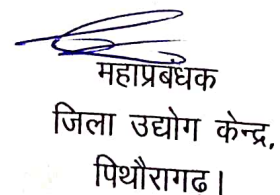 महाप्रबंधक
जिला उद्योग केन्द्र,
पिथौरागढ।